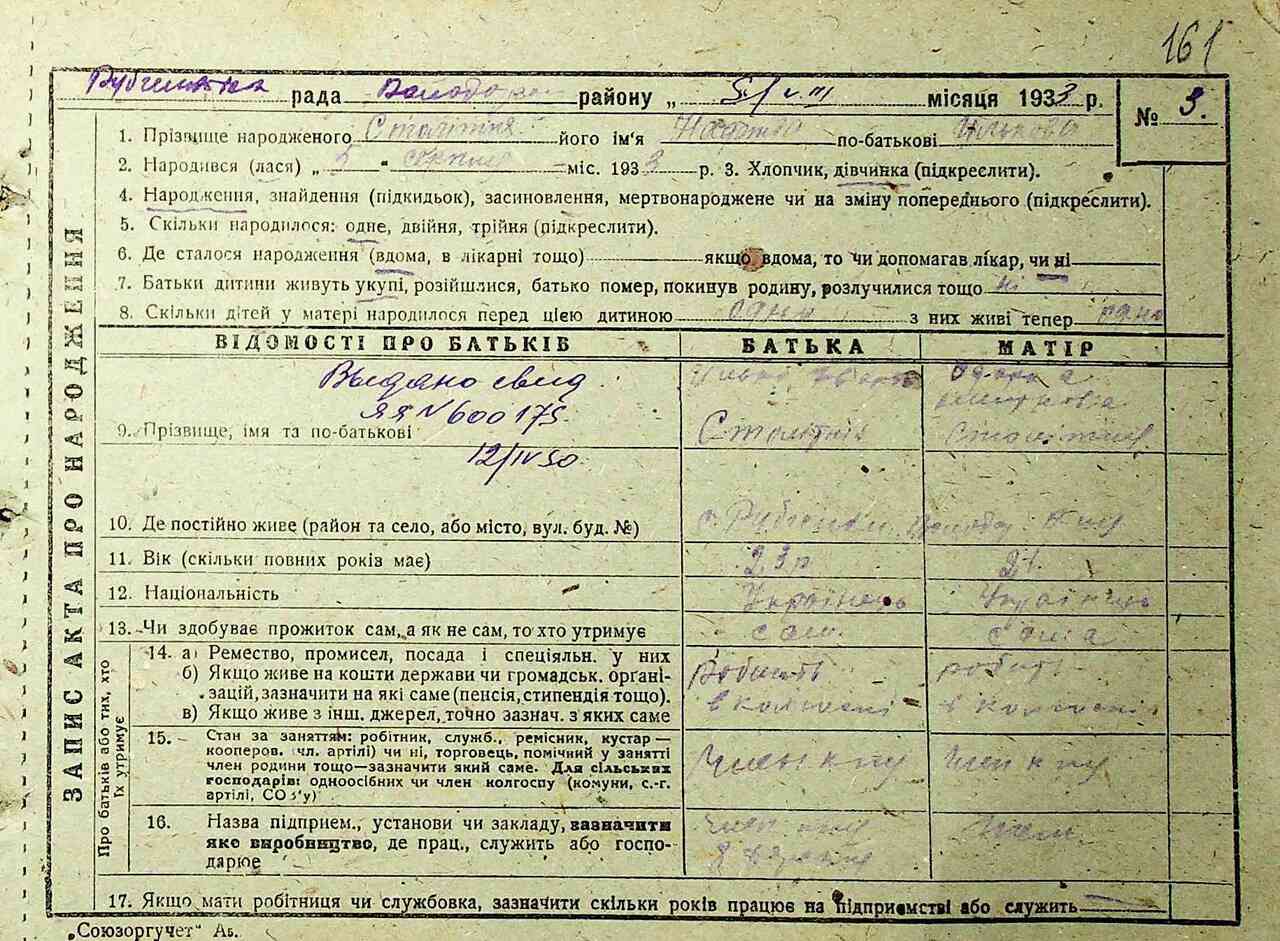 161
рада району „ 5/VIII місяця 1933 р.
№ 3.
1. Прізвище народженого його ім'я по-батькові
2. Народився (лася) „ 3 " серпня міс. 1933 р. 3. Хлопчик, дівчинка (підкреслити).
4. Народження, знайдення (підкидьок), засиновлення, мертвонароджене чи на зміну попереднього (підкреслити).
5. Скільки народилося: одне, двійня, трійня (підкреслити).
6. Де сталося народження (вдома, в лікарні тощо) якщо вдома, то чи допомагав лікар, чи ні
7. Батьки дитини живуть укупі, розійшлися, батько помер, покинув родину, розлучилися тощо ні
8. Скільки дітей у матері народилося перед цією дитиною одна з них живі тепер одна
ЗАПИС АКТА ПРО НАРОДЖЕННЯ
ВІДОМОСТІ ПРО БАТЬКІВ БАТЬКА МАТІР
Выдано свид
ЯЯ N 600175
9. Прізвище, імя та по-батькові Столітній
12/IV 50.
10. Де постійно живе (район та село, або місто, вул. буд. №) с. Рубченки
11. Вік (скільки повних років має) 23 р 21
12. Національність Українець
13. Чи здобуває прожиток сам, а як не сам, то хто утримує сам. сама
Про батьків або тих, хто їх утримує
14. а) Ремество, промисел, посада і спеціяльн. у них робить робить
б) Якщо живе на кошти держави чи громадськ. орґані-
зацій, зазначити на які саме (пенсія, стипендія тощо). в колгоспі в колгоспі
в) Якщо живе з інш. джерел, точно зазнач. з яких саме
15. Стан за заняттям: робітник, служб., ремісник, кустар—
кооперов. чл. артілі) чи ні, торговець, помічний у занятті
член родини тощо—зазначити який саме. Для сільських
господарів: одноосібних чи член колгоспу (комуни, с.-г.
артілі, СОЗ'у)
16. Назва підприєм., установи чи закладу, зазначити
яке виробництво, де прац., служить або госпо-
дарює
17. Якщо мати робітниця чи службовка, зазначити скільки років працює на підприємстві або служить
„Союзоргучет" Ав.